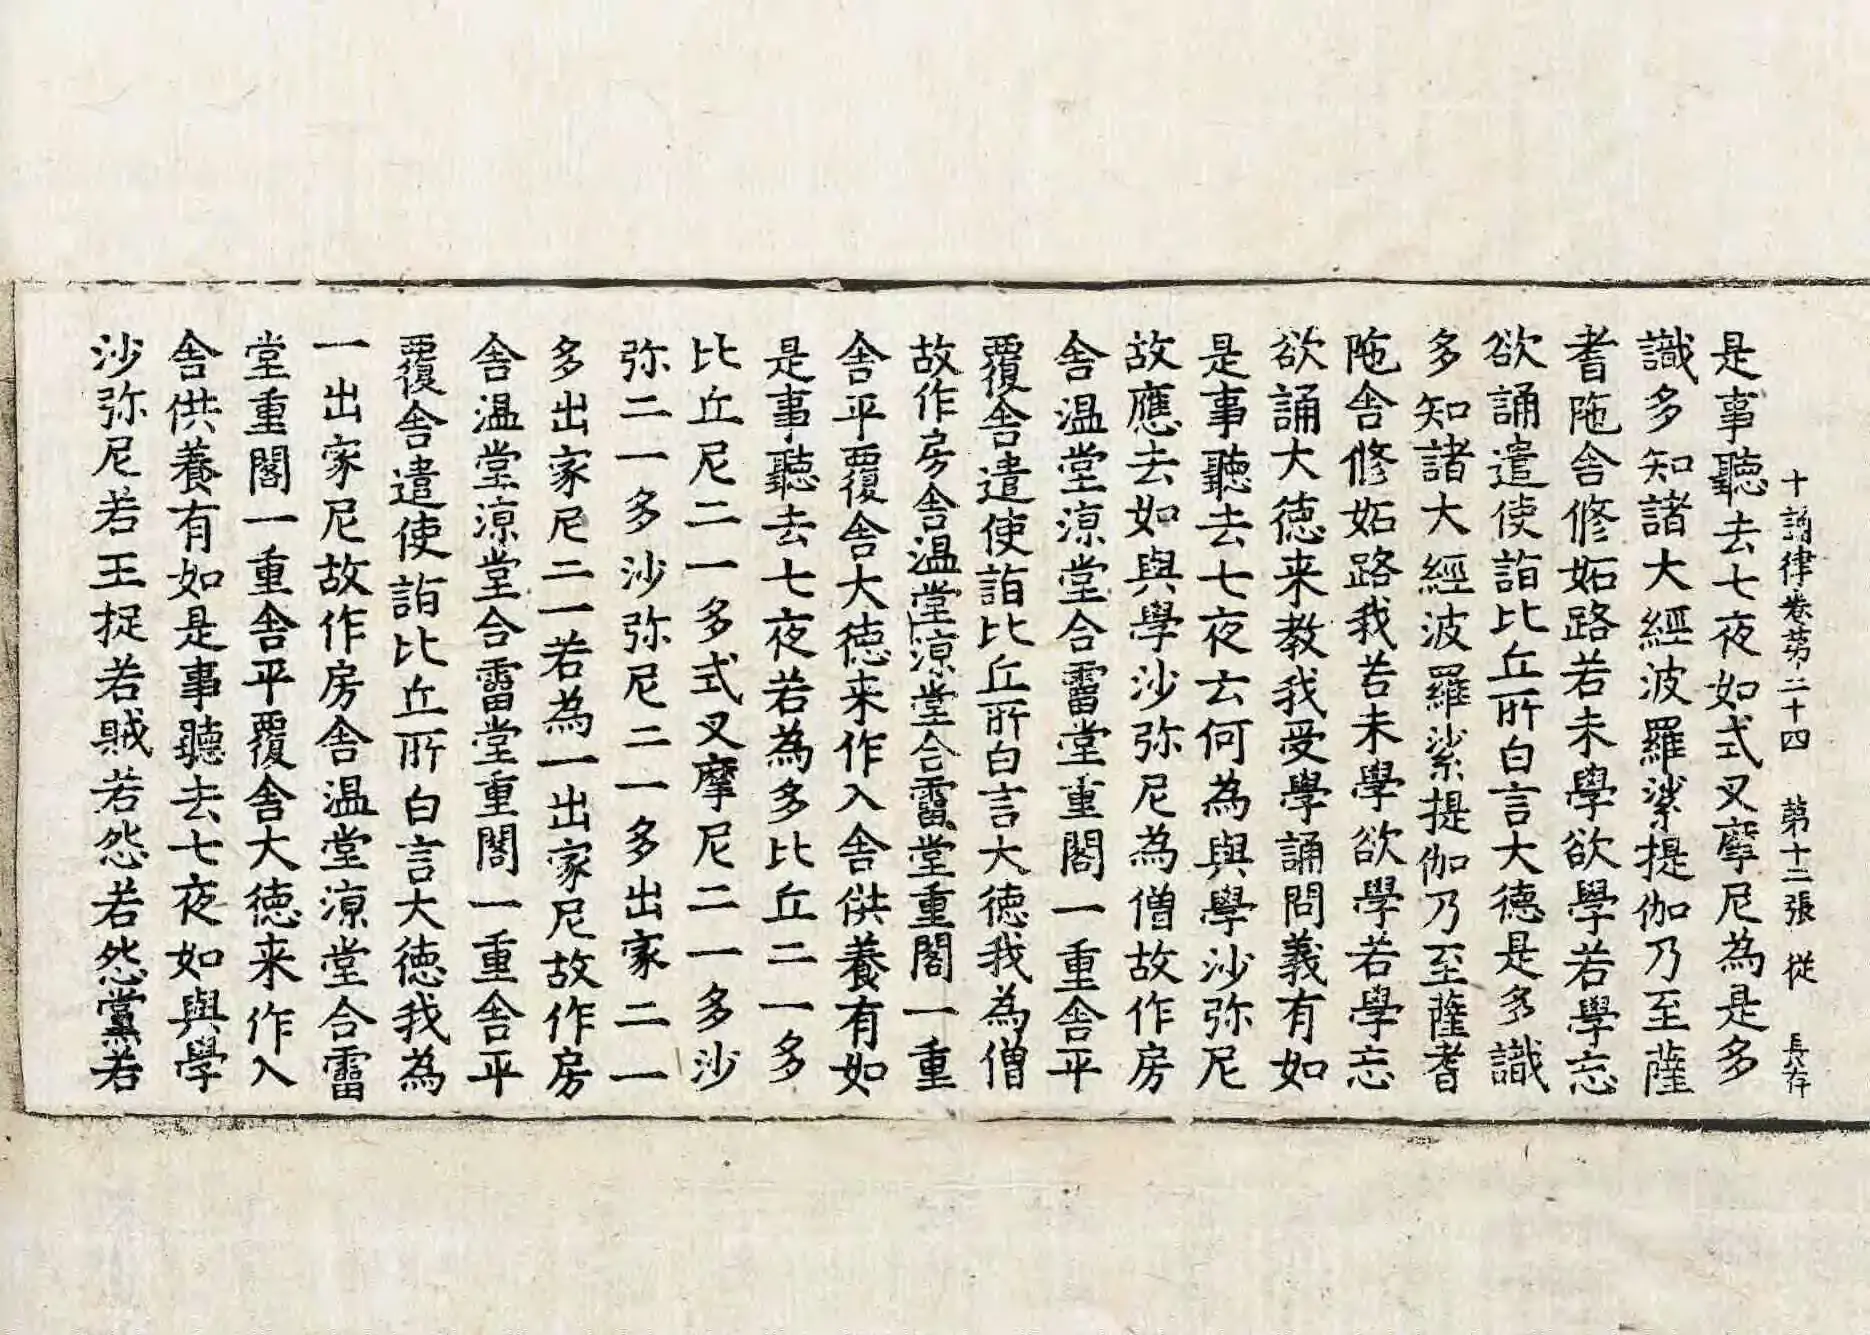 十誦律卷苐二十四 苐十二張 從 長存
是事聽去七夜如式叉摩尼為是多
識多知諸大經波羅䋈提伽乃至薩
耆陁舎修妬路若未學欲學若學忘
欲誦遣使詣比丘所白言大德是多識
多知諸大經波羅䋈提伽乃至薩耆
陁舎修妬路我若未學欲學若學忘
欲誦大德来教我受學誦問義有如
是事聽去七夜云何為與學沙弥尼
故應去如與學沙弥尼為僧故作房
舎温堂涼堂合霤堂重閣一重舎平
覆舎遣使詣比丘所白言大德我為僧
故作房舎温堂涼堂合霤堂重閣一重
舎平覆舎大德来作入舎供養有如
是事聽去七夜若為多比丘二一多
比丘尼二一多式叉摩尼二一多沙
弥二一多沙弥尼二一多出家二一
多出家尼二一若為一出家尼故作房
舎温堂涼堂合霤堂重閣一重舎平
覆舎遣使詣比丘所白言大德我為
一出家尼故作房舎温堂涼堂合霤
堂重閣一重舎平覆舎大德来作入
舎供養有如是事聽去七夜如與學
沙弥尼若王捉若賊若怨若怨黨若